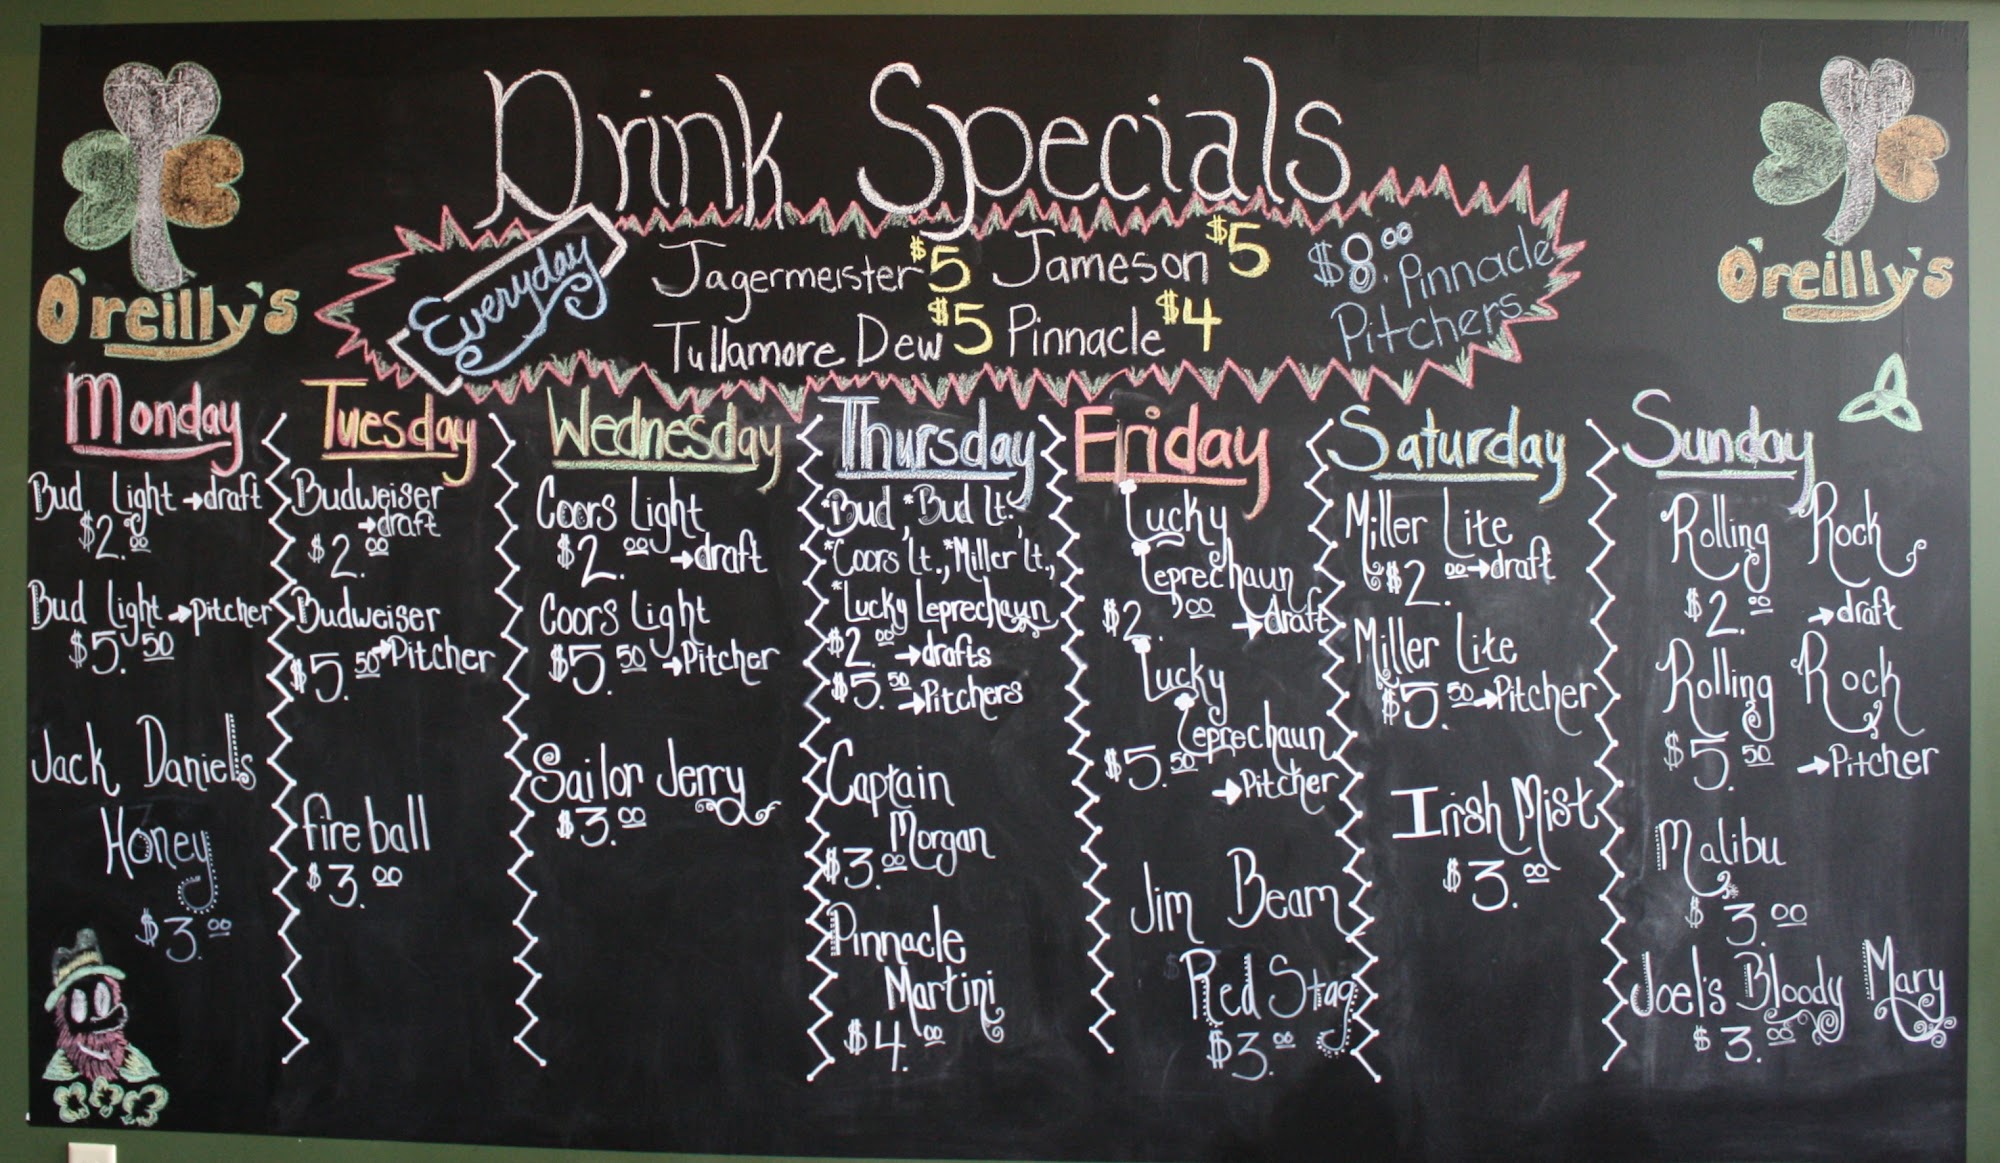 Drink Specials
O'reilly's
O'reilly's
Everyday
Jagermeister $5 Jameson $5
Tullamore Dew $5 Pinnacle $4
$8.00 Pinnacle
Pitchers
Monday
Bud Light →draft
$2.00
Bud Light →pitcher
$5.50
Jack Daniels
Honey
$3.00
Tuesday
Budweiser
→draft
$2.00
Budweiser
→Pitcher
$5.50
fireball
$3.00
Wednesday
Coors Light
$2.00 →draft
Coors Light
$5.50 →Pitcher
Sailor Jerry
$3.00
Thursday
*Bud, *Bud Lt.,
*Coors Lt., *Miller Lt.,
*Lucky Leprechaun
$2.00 →drafts
$5.50 →Pitchers
Captain
Morgan
$3.00
Pinnacle
Martini
$4.00
Friday
Lucky
Leprechaun
$2.00 →draft
Lucky
Leprechaun
$5.50
→Pitcher
Jim Beam
Red Stag
$3.00
Saturday
Miller Lite
$2.00 →draft
Miller Lite
$5.50 →Pitcher
Irish Mist
$3.00
Sunday
Rolling Rock
$2.00 →draft
Rolling Rock
$5.50 →Pitcher
Malibu
$3.00
Joel's Bloody Mary
$3.00